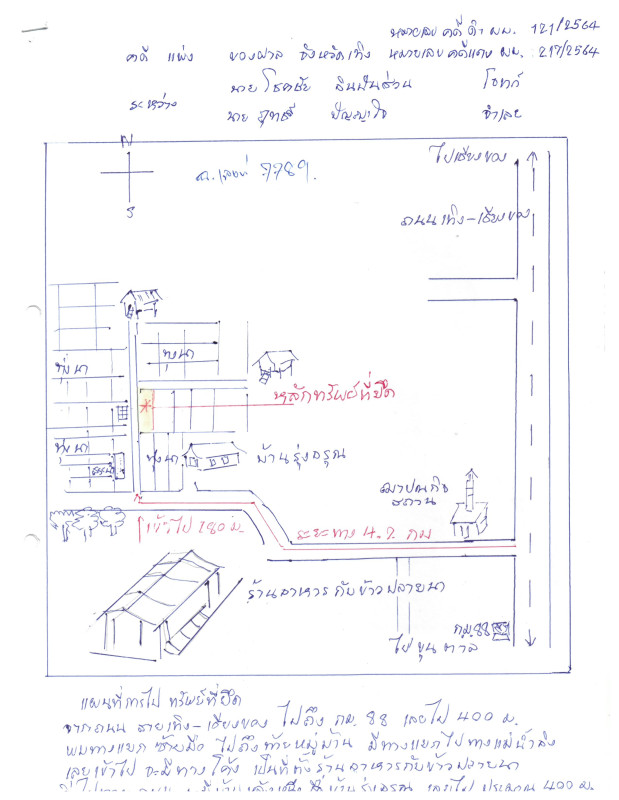 หมายเลขคดีดำ ผบ. 121/2564
คดี แพ่ง ของศาล จังหวัดเทิง หมายเลขคดีแดง ผบ. 217/2564
นาย โชคชัย โจทก์
ระหว่าง
นาย ปัญญาใจ จำเลย
N
S
ไปเชียงของ
ถนน เทิง-เชียงของ
ทุ่งนา
ทุ่งนา
หลักทรัพย์ที่ยึด
ทุ่งนา
ทุ่งนา
บ้านรุ่งอรุณ
ฌาปนกิจ
สถาน
เข้าไป 280 ม.
ระยะทาง 4.2 กม
ร้านอาหาร กับข้าวปลายนา
กม.88
ไปขุนตาล
แผนที่การไป ทรัพย์ที่ยึด
จากถนน สายเทิง-เชียงของ ไปถึง กม. 88 เลยไป 400 ม.
พบทางแยก ซ้ายมือ ไปถึงท้ายหมู่บ้าน มีทางแยกไปทางแม่น้ำอิง
เลยเข้าไป จะมีทางโค้ง เป็นที่ตั้งร้านอาหารกับข้าวปลายนา
บ้านรุ่งอรุณ เลยไป ประมาณ 400 ม.